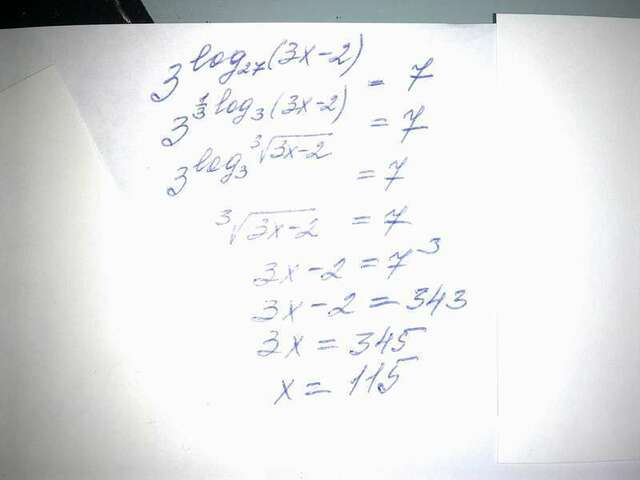 3^{log_{27}(3x-2)} = 7
3^{\frac{1}{3}log_3(3x-2)} = 7
3^{log_3 \sqrt[3]{3x-2}} = 7
\sqrt[3]{3x-2} = 7
3x-2 = 7^3
3x-2 = 343
3x = 345
x = 115